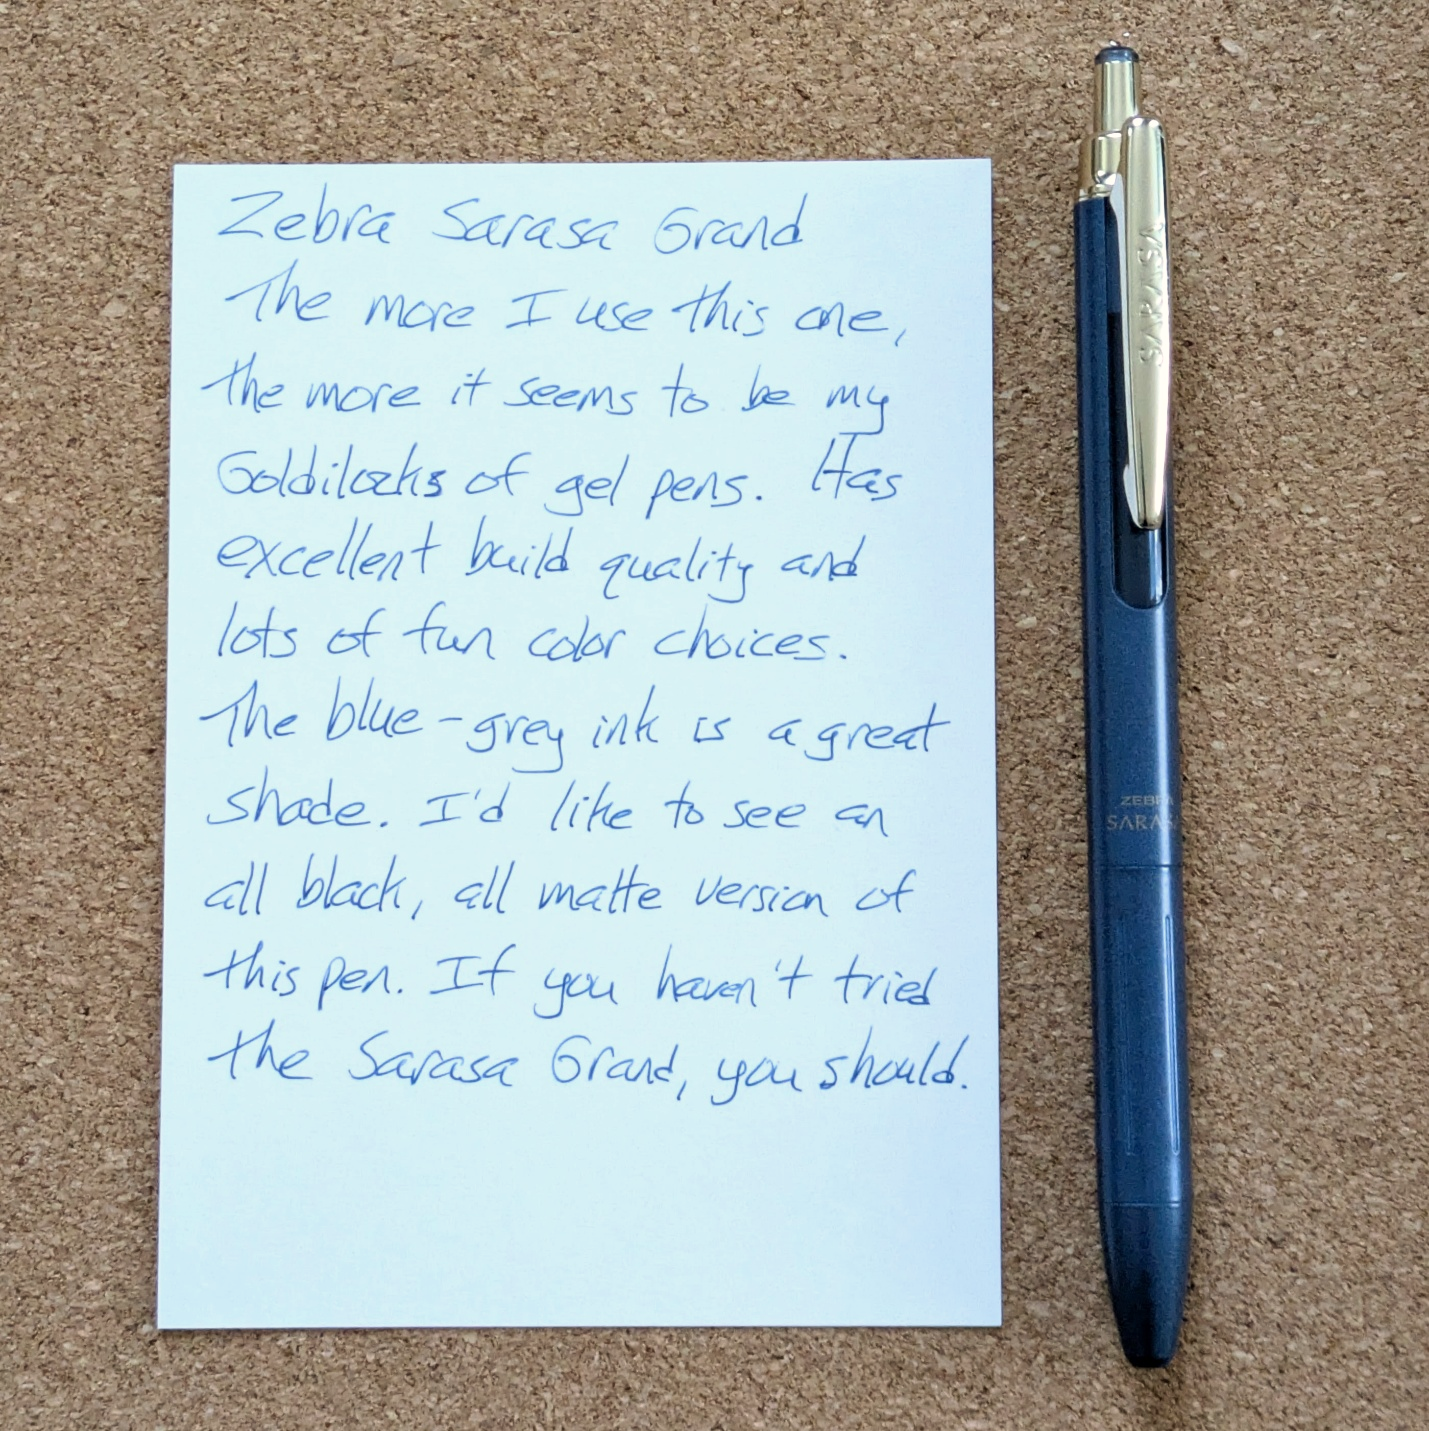 Zebra Sarasa Grand
The more I use this one,
the more it seems to be my
Goldilocks of gel pens. Has
excellent build quality and
lots of fun color choices.
The blue-grey ink is a great
shade. I'd like to see an
all black, all matte version of
this pen. If you haven't tried
the Sarasa Grand, you should.
SARASA
ZEBRA
SARASA